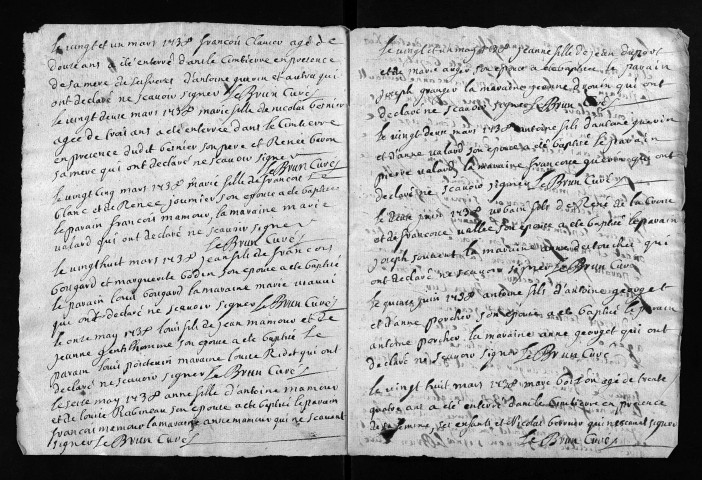 le vingt et un mars 1738 françois Clavier agé de
douze ans a été enterré dans le Cimetierre en presence
de sa mere de ses freres d'antoine guerin et autres qui
ont declaré ne scavoir signer Le Brun Curé
le vingt deux mars 1738 marie fille de nicolas bernier
agée de trois ans a eté enterrée dans le Cimtierre
en presence dudit bernier son pere et Renée
sa mere qui ont declaré ne scavoir signer
Le Brun Curé
le vingt cinq mars 1738 marie fille de francois Le
blanc et de Renée journier son epouse a ete baptisée
le parain francois mamour la maraine marie
valard qui ont declaré ne scavoir signer
Le Brun Curé
le vingt huit mars 1738 jean fils de francois
bougard et marguerite bodin son epouse a eté baptisé
le parain louis bougard la maraine marie
qui ont declaré ne scavoir signer Le Brun Curé
le onze may 1738 louis fils de jean mamour et de
jeanne gentilhomme son epouse a ete baptisé Le
parain louis poictevin maraine louise Ridet qui ont
declaré ne scavoir signer Le Brun Curé
le seize may 1738 anne fille d'antoine mamour
et de louise Rabineau son epouse a ete baptisée le parain
francois mamour la maraine anne mamour qui ne scavent
signer Le Brun Curé
le vingt et un may 1738 jeanne fille de jean dupont
et de marie anger son epouse a ete baptisée le parain
joseph granger la maraine jeanne drouin qui ont
declaré ne scavoir signer Le Brun Curé
le vingt deux mars 1738 antoine fils d'antoine guerin
et d'anne valard son epouse a ete baptisé le parain
pierre valard la maraine francoise guerin qui ont
declaré ne scavoir signer Le Brun Curé
le juin 1738 urbain fils de René de la
et de francoise vallée son epouse a eté baptisé le parain
joseph la maraine anne destouches qui
ont declaré ne scavoir signer Le Brun Curé
le quinze juin 1738 antoine fils d'antoine georget
et d'anne porcher son epouse a ete baptisé le parain
antoine porcher la maraine anne georget qui ont
declaré ne scavoir signer Le Brun Curé
le vingt huit mars 1738 marc agé de trente
quatre ans a ete enterré dans le Cimetierre en presence
de sa femme, ses enfants et Nicolas qui ne scavent signer
Le Brun Curé